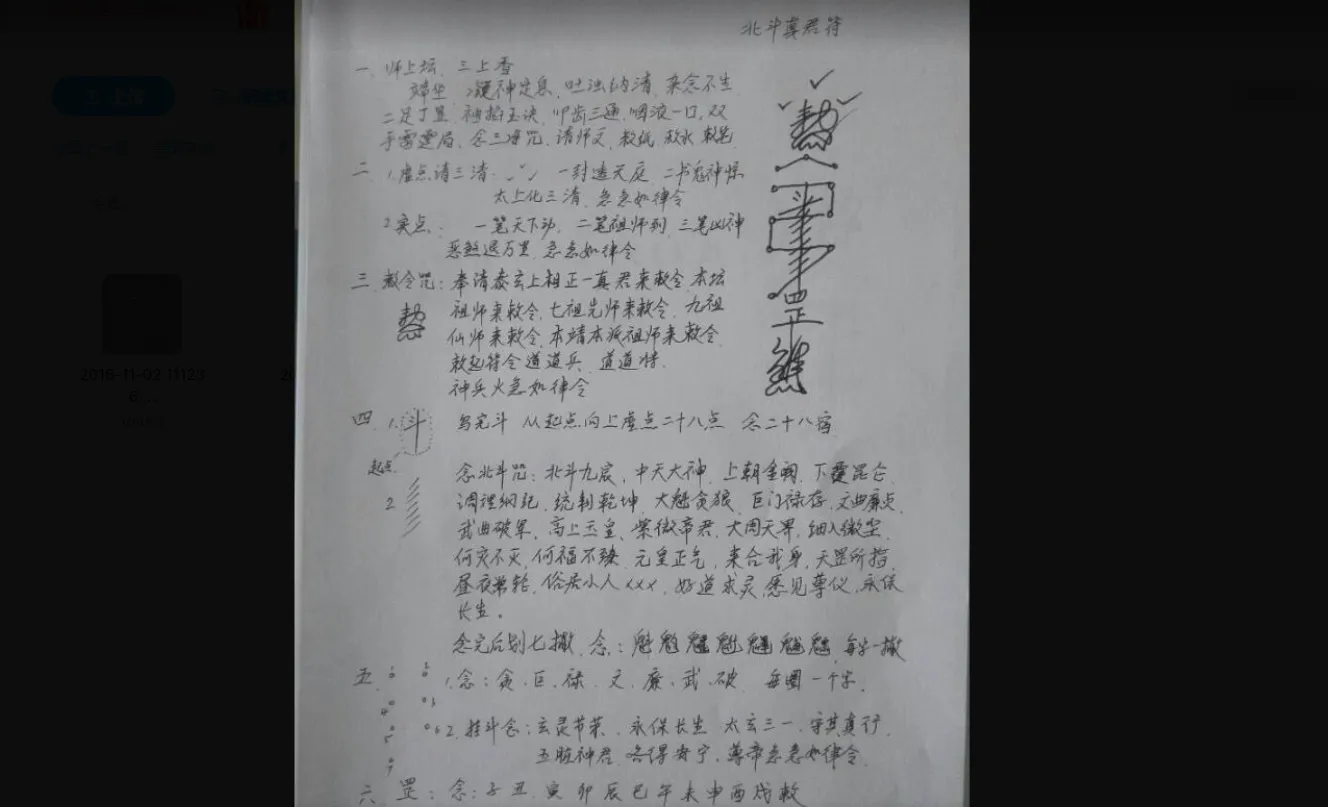 北斗真君符
一 师上坛 三上香
凝神定息、吐浊纳清 杂念不生
二足丁罡 神掐玉诀 叩齿三通 咽液一口 双
手雷霆局、念三净咒 请师父 敕纸 敕水 敕笔
二 1.虚点请三清: 一封达天庭 二书鬼神惊
太上化三清 急急如律令
2实点: 一笔天下动 二笔祖师到 三笔凶神
恶煞退万里 急急如律令
三 敕令咒:奉请泰玄上相正一真君来敕令 本坛
祖师来敕令 七祖先师来敕令 九祖
仙师来敕令 本靖本派祖师来敕令
敕起符令道道兵 道道将
神兵火急如律令
四 1. 斗 写完斗 从起点向上虚点二十八点 念二十八宿
起点
念北斗咒:北斗九宸,中天大神 上朝金阙 下覆昆仑
2 调理纲纪 统制乾坤 大魁贪狼 巨门禄存 文曲廉贞
武曲破军 高上玉皇 紫微帝君 大周天界 细入微尘
何灾不灭 何福不臻 元皇正气 来合我身 天罡所指
昼夜常轮 俗居小人xxx,好道求灵 愿见尊仪 永保
长生。
念完后划七撇 念: 每字一撇
五 1.念:贪 巨 禄 文 廉 武 破 每圈一个字
2.挂斗念:玄灵节荣 永保长生 太玄三一 守其真形
五脏神君 各得安宁 尊帝急急如律令
六 罡:念:子 丑 寅 卯 辰 巳 午 未 申 酉 戌 敕